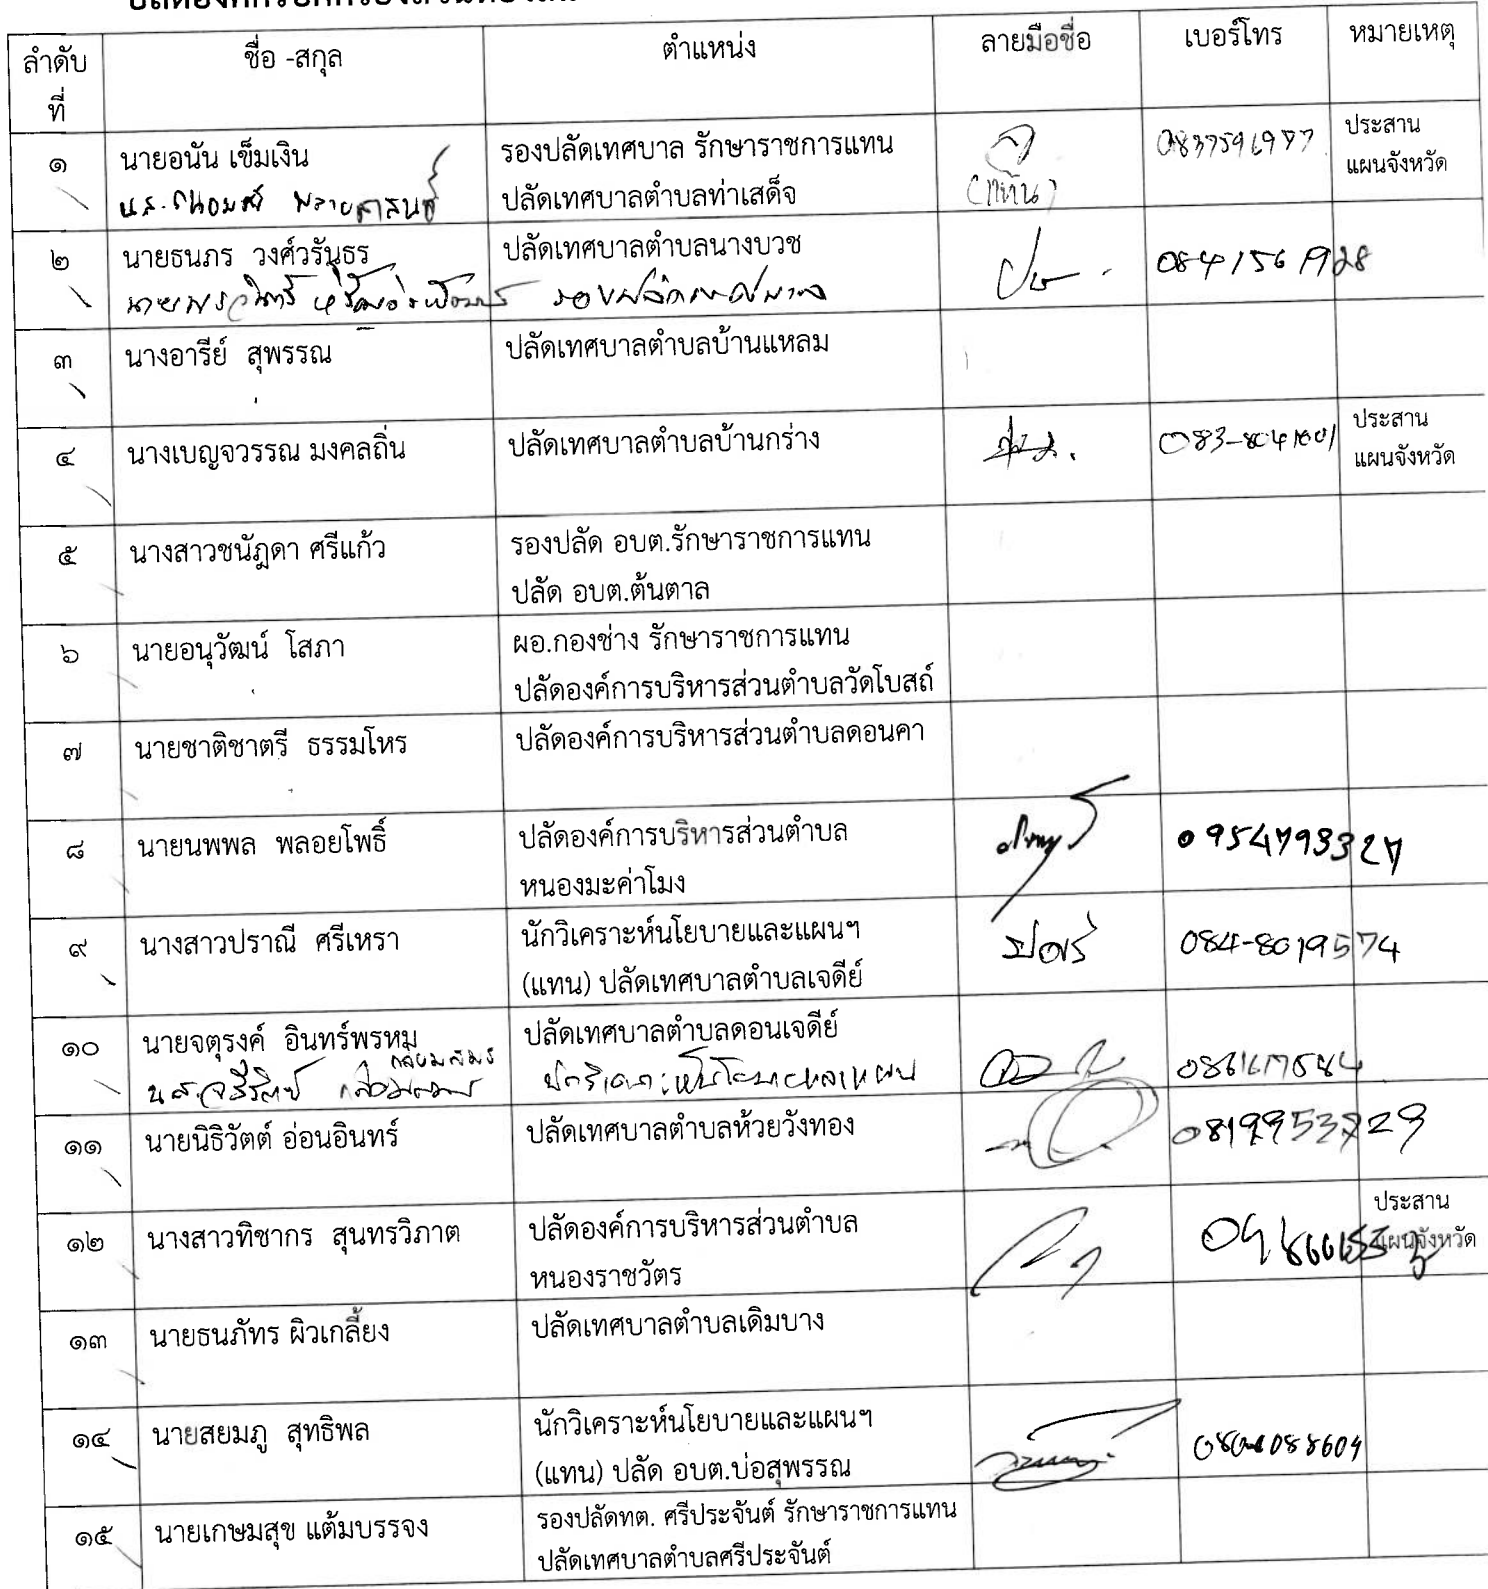 ลำดับ ชื่อ -สกุล ตำแหน่ง ลายมือชื่อ เบอร์โทร หมายเหตุ
ที่
๑ นายอนัน เข็มเงิน รองปลัดเทศบาล รักษาราชการแทน ประสาน
น.ส. ปลัดเทศบาลตำบลท่าเสด็จ (แทน) แผนจังหวัด
๒ นายธนภร วงศ์วรันธร ปลัดเทศบาลตำบลนางบวช 0841561928
๓ นางอารีย์ สุพรรณ ปลัดเทศบาลตำบลบ้านแหลม
๔ นางเบญจวรรณ มงคลถิ่น ปลัดเทศบาลตำบลบ้านกร่าง ประสาน
แผนจังหวัด
๕ นางสาวชนัฎดา ศรีแก้ว รองปลัด อบต.รักษาราชการแทน
ปลัด อบต.ต้นตาล
๖ นายอนุวัฒน์ โสภา ผอ.กองช่าง รักษาราชการแทน
ปลัดองค์การบริหารส่วนตำบลวัดโบสถ์
๗ นายชาติชาตรี ธรรมโหร ปลัดองค์การบริหารส่วนตำบลดอนคา
๘ นายนพพล พลอยโพธิ์ ปลัดองค์การบริหารส่วนตำบล 0954793327
หนองมะค่าโมง
๙ นางสาวปราณี ศรีเหรา นักวิเคราะห์นโยบายและแผนฯ 084-8019574
(แทน) ปลัดเทศบาลตำบลเจดีย์
๑๐ นายจตุรงค์ อินทร์พรหม ปลัดเทศบาลตำบลดอนเจดีย์
น.ส. นักวิเคราะห์นโยบายและแผน
๑๑ นายนิธิวัตต์ อ่อนอินทร์ ปลัดเทศบาลตำบลห้วยวังทอง
๑๒ นางสาวทิชากร สุนทรวิภาต ปลัดองค์การบริหารส่วนตำบล ประสาน
หนองราชวัตร แผนจังหวัด
๑๓ นายธนภัทร ผิวเกลี้ยง ปลัดเทศบาลตำบลเดิมบาง
๑๔ นายสยมภู สุทธิพล นักวิเคราะห์นโยบายและแผนฯ
(แทน) ปลัด อบต.บ่อสุพรรณ
๑๕ นายเกษมสุข แต้มบรรจง รองปลัดทต. ศรีประจันต์ รักษาราชการแทน
ปลัดเทศบาลตำบลศรีประจันต์